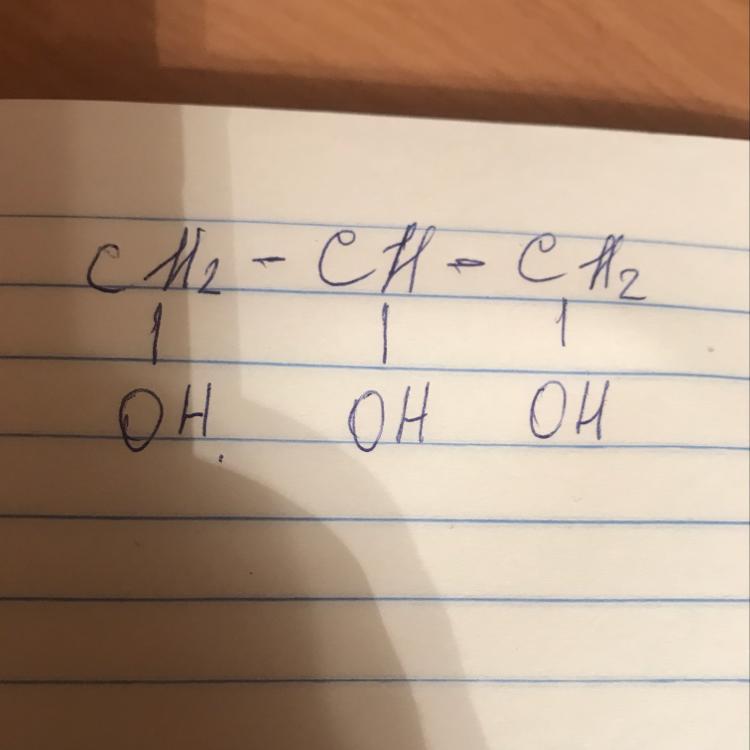 CH2 - CH - CH2
| | |
OH OH OH